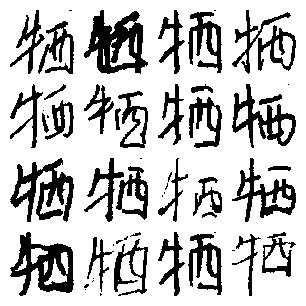 牺牺牺牺
牺牺牺牺
牺牺牺牺
牺牺牺牺